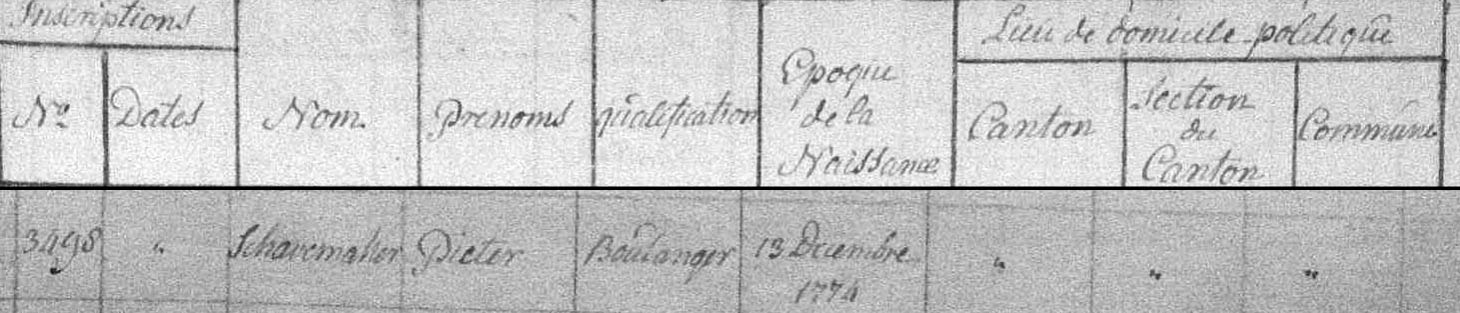 Inscriptions
Lieu de domicile politique
Nº Dates Nom. Prenoms qualification Epoque de la Naissance Canton Section du Canton Commune
3498 " Schavemaker Pieter Boulanger 13 Decembre 1774 " " "